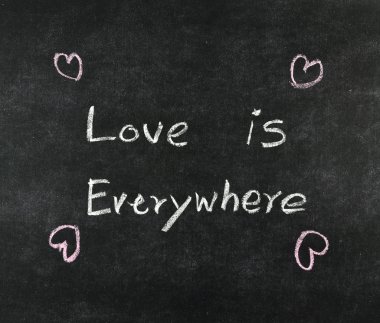 Love is
Everywhere